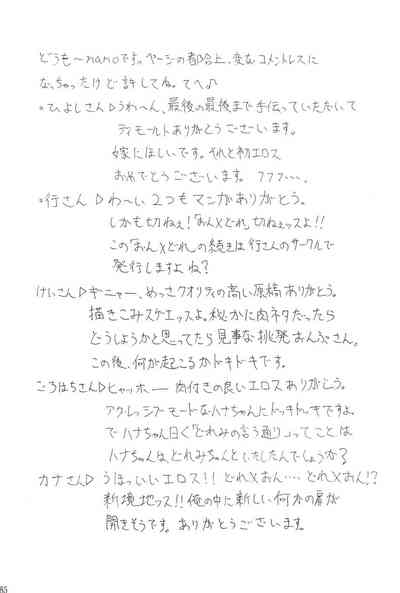 どうも〜nanoです。ページの都合上、変なコメントレスに
なっちゃったけど許してね。てへ♪
*ひよしさん▷うわ〜ん、最後の最後まで手伝っていただいて
ディモールトありがとうございます。
嫁にほしいです。それと初エロス
おめでとうございます。フフフ・・・.
*行さん▷わ〜い2つもマンガありがとう。
しかも切ねぇ!「おん×どれ」切ねぇッスよ!!
この「おん×どれ」の続きは行さんのサークルで
発行しますよね?
けいさん▷ギニャー、めっさクオリティの高い原稿ありがとう。
描きこみスゲエッスよ。秘かに肉ネタだったら
どうしようかと思ってたら見事な挑発おんぷさん。
この後、何が起こるかドキドキです。
ごろはちさん▷ヒャッホー 肉付きの良いエロスありがとう。
アグレッシブモードなハナちゃんにドッキドキですよ
でハナちゃん曰く「どれみの言う通り」ってことは
ハナちゃんは、どれみちゃんといたしたんでしょうか?
カナさん▷うほっいいエロス!!どれ×おん・・・・どれ×おん!?
新境地ッス!!俺の中に新しい何かの扉が
開きそうです。ありがとうございます。
85